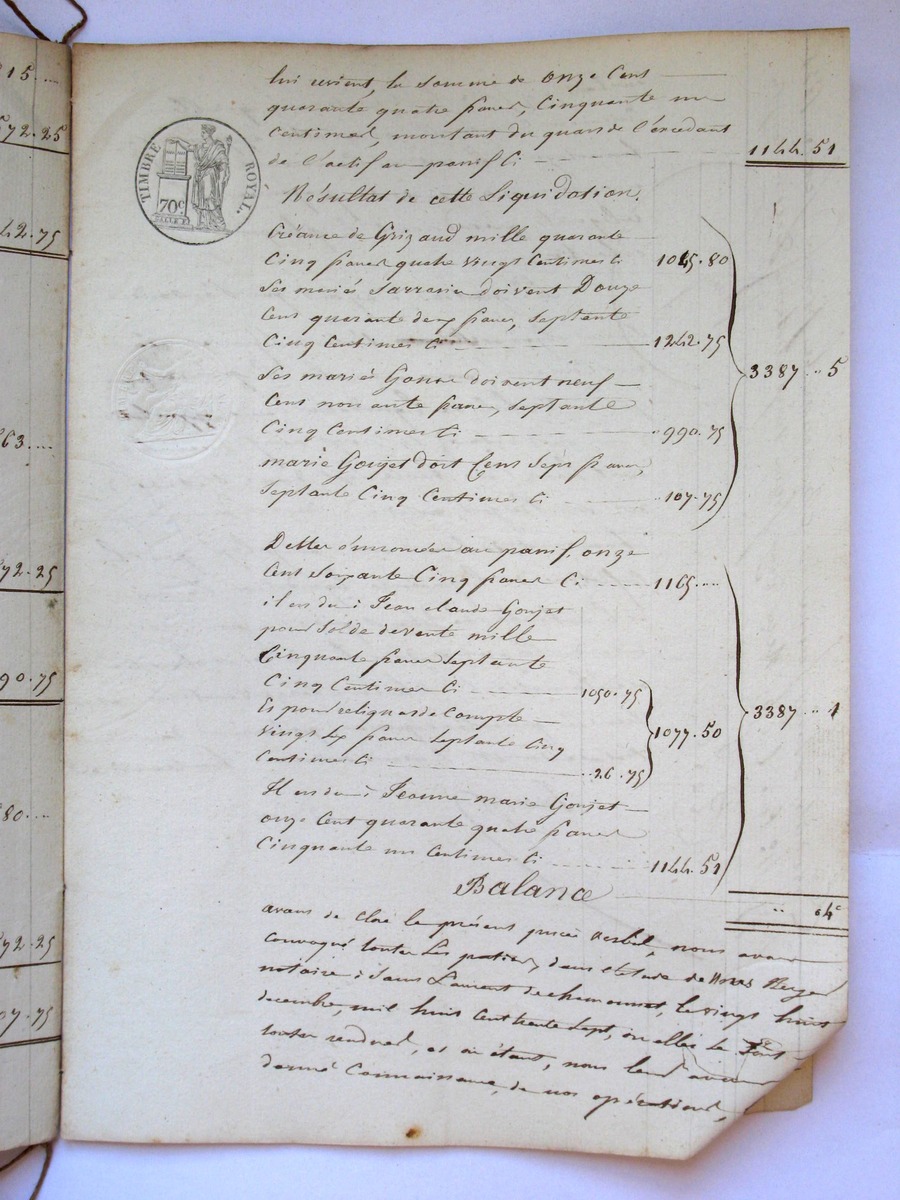 lui revient, la somme de onze cent
quarante quatre francs, cinquante un
centimes, montant du quart de l'excedant
de l'actif au passif Ci 1144. 51
Résultat de cette Liquidation.
Créance de Grizaud mille quarante
Cinq francs quatre vingt Centimes Ci 1045. 80
Les mariés Sarrasin doivent Douze
Cent quarante deux francs, Septante
Cinq Centimes Ci 1242. 75
3387 .. 5
Les mariés doivent neuf
Cent nonante francs, Septante
Cinq Centimes Ci 990. 75
marie Goujet doit Cent Sept francs,
Septante Cinq Centimes Ci 107. 75
Dettes énnoncées au passif, onze
Cent Soixante Cinq francs Ci 1165 ....
il est du à Jean claude Goujet
pour Solde de vente mille
Cinquante francs Septante
Cinq Centimes Ci 1050. 75
Et pour reliquat de Compte
vingt six francs Septante Cinq
Centimes Ci 26. 75
1077. 50
3387 .. 1
Il est du à Jeanne marie Goujet
onze Cent quarante quatre francs
Cinquante un Centimes Ci 1144. 51
Balance .. 04c
avant de Clore le présent procès verbal, nous avons
Convoqué toutes Les parties, dans l'étude de
notaire à Saint Laurent de chamousset, le vingt huit
decembre, mil huit Cent trente Sept, où elles Se Sont
toutes rendues, et où étant, nous leur avons
donné Connaissance, de nos opérations,
TIMBRE ROYAL.
70c
15 ....
572. 25
42. 75
63 ....
72. 25
90. 75
80 ....
72. 25
07. 75